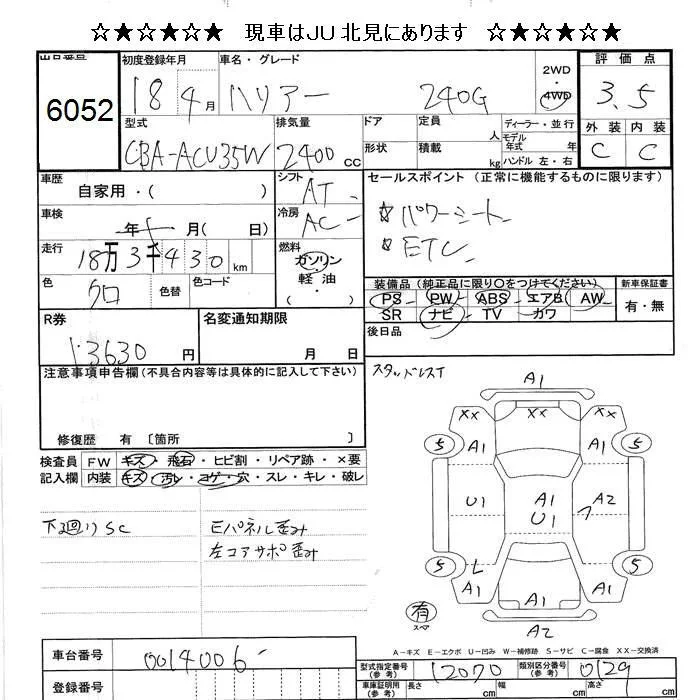 ☆★☆★☆★ 現車はJU北見にあります ☆★☆★☆★
出品番号 初度登録年月 車名・グレード 2WD 4WD 評価点
6052 18 4月 ハリアー 240G 3.5
型式 排気量 ドア 定員 人 ディーラー・並行 外装 内装
CBA-ACU35W 2400cc 形状 積載 kg モデル年式 年 ハンドル 左・右 C C
車歴 自家用・( ) シフト AT セールスポイント (正常に機能するものに限ります)
車検 年 月( 日) 冷房 AC ☆パワーシート
走行 18万3千430km 燃料 ガソリン・軽油・ ☆ETC
色 クロ 色替 色コード 装備品(純正品に限り○をつけてください) 新車保証書
PS PW ABS エアB AW 有・無
SR ナビ TV カワ
R券 名変通知期限 後日品
13630円 月 日
注意事項申告欄(不具合内容等は具体的に記入して下さい) スタッドレスT
修復歴 有 〔箇所 〕
検査員 FW キズ・飛石・ヒビ割・リペア跡・×要
記入欄 内装 キズ・汚レ・コゲ・穴・スレ・キレ・破レ
A1
XX XX XX
5 A1 A1 5
U1 A1 U1 A2
5 L 5
A1 A1 A1
A2
下廻りSC Eパネル歪み
左コアサポ歪み
有 スペア
A-キズ E-エクボ U-凹み W-補修跡 S-サビ C-腐食 XX-交換済
車台番号 0014006 型式指定番号(参考) 12070 類別区分番号(参考) 0129
登録番号 車庫証明用(参考) 長さ cm 幅 cm 高さ cm